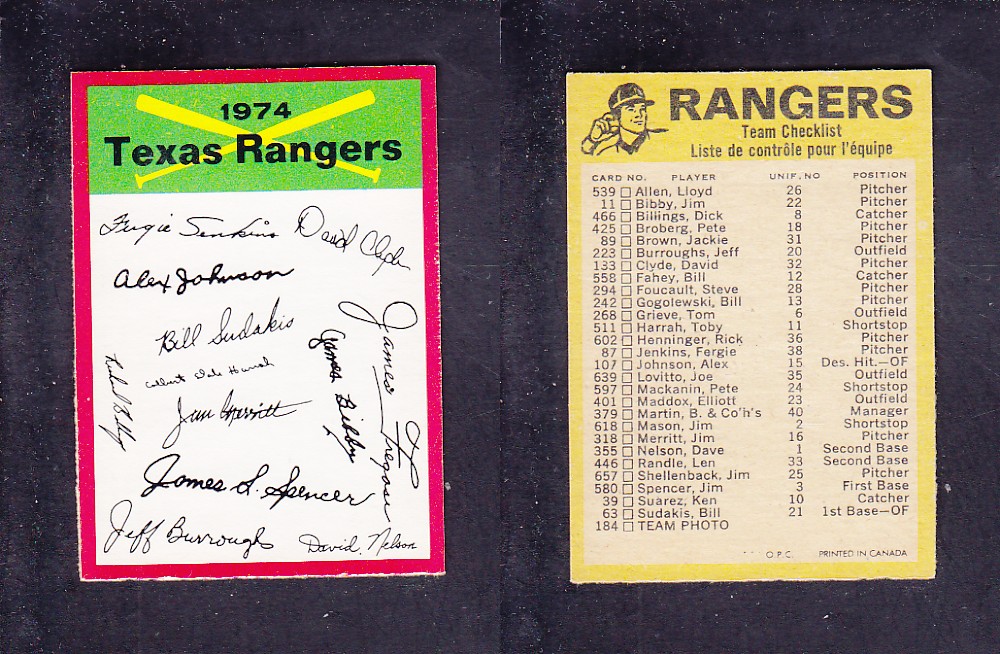 1974
Texas Rangers
Fergie Jenkins
David Clyde
Alex Johnson
Bill Sudakis
James Fregosi
James Bibby
Colbert Dale Harrah
Jim Merritt
James L. Spencer
Jeff Burroughs
David Nelson
RANGERS
Team Checklist
Liste de contrôle pour l'équipe
CARD NO. PLAYER UNIF. NO POSITION
539 Allen, Lloyd 26 Pitcher
11 Bibby, Jim 22 Pitcher
466 Billings, Dick 8 Catcher
425 Broberg, Pete 18 Pitcher
89 Brown, Jackie 31 Pitcher
223 Burroughs, Jeff 20 Outfield
133 Clyde, David 32 Pitcher
558 Fahey, Bill 12 Catcher
294 Foucault, Steve 28 Pitcher
242 Gogolewski, Bill 13 Pitcher
268 Grieve, Tom 6 Outfield
511 Harrah, Toby 11 Shortstop
602 Henninger, Rick 36 Pitcher
87 Jenkins, Fergie 38 Pitcher
107 Johnson, Alex 15 Des. Hit.—OF
639 Lovitto, Joe 35 Outfield
597 Mackanin, Pete 24 Shortstop
401 Maddox, Elliott 23 Outfield
379 Martin, B. & Co'h's 40 Manager
618 Mason, Jim 2 Shortstop
318 Merritt, Jim 16 Pitcher
355 Nelson, Dave 1 Second Base
446 Randle, Len 33 Second Base
657 Shellenback, Jim 25 Pitcher
580 Spencer, Jim 3 First Base
39 Suarez, Ken 10 Catcher
63 Sudakis, Bill 21 1st Base—OF
184 TEAM PHOTO
O.P.C. PRINTED IN CANADA